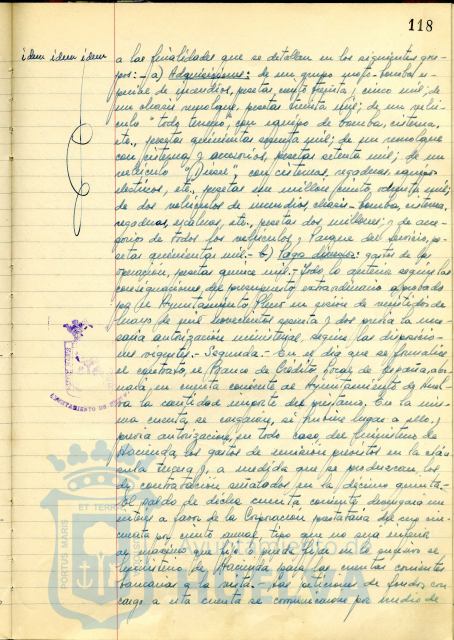 118
idem idem idem
a las finalidades que se detallan en los siguientes gru-
pos: - a) Adquisiciones: de un grupo moto-bomba es-
pecial de incendios, pesetas ciento treinta y cinco mil; de
un chasis remolque, pesetas treinta mil; de un vehí-
culo "todo terreno", con equipo de bomba, cisterna,
etc., pesetas quinientas mil; de un remolque
con cisterna y accesorios, pesetas setenta mil; de un
vehículo "Diesel", con cisternas, regadoras, equipos
eléctricos, etc., pesetas un millón ciento mil;
de dos vehículos de incendios, chasis-bomba, cisterna,
regadoras, escaleras, etc., pesetas dos millones; y de acce-
sorios de todos los vehículos y Parque del Servicio, pe-
setas quinientas mil. - b) Pago diverso: gastos de la
operación, pesetas quince mil. - Todo lo anterior según las
consignaciones del presupuesto extraordinario aprobado
por el Ayuntamiento Pleno en sesión de veintidós de
Marzo de mil novecientos sesenta y dos previa la nece-
saria autorización ministerial, según las disposicio-
nes vigentes. - Segunda. - En el día que se formalice
el contrato, el Banco de Crédito Local de España, abo-
nará, en cuenta corriente al Ayuntamiento de Huel-
va la cantidad importe del préstamo. En la mis-
ma cuenta, se cargarán, si hubiere lugar a ello, y
previa autorización, en todo caso, del Ministerio de
Hacienda, los gastos de emisión previstos en la cláu-
sula tercera y, a medida que se produzcan, los
de contratación señalados en la décimo quinta. -
El saldo de dicha cuenta corriente devengará in-
tereses a favor de la Corporación prestataria del cin-
cuenta por ciento anual, tipo que no será inferior
al máximo que fije o pueda fijar en lo sucesivo el
Ministerio de Hacienda para las cuentas corrientes
bancarias a la vista. - Las peticiones de fondos con
cargo a esta cuenta se comunicarán por medio de
AYUNTAMIENTO DE
PORTUS MARIS ET TERRAE
Ayuntamiento de
HUELVA